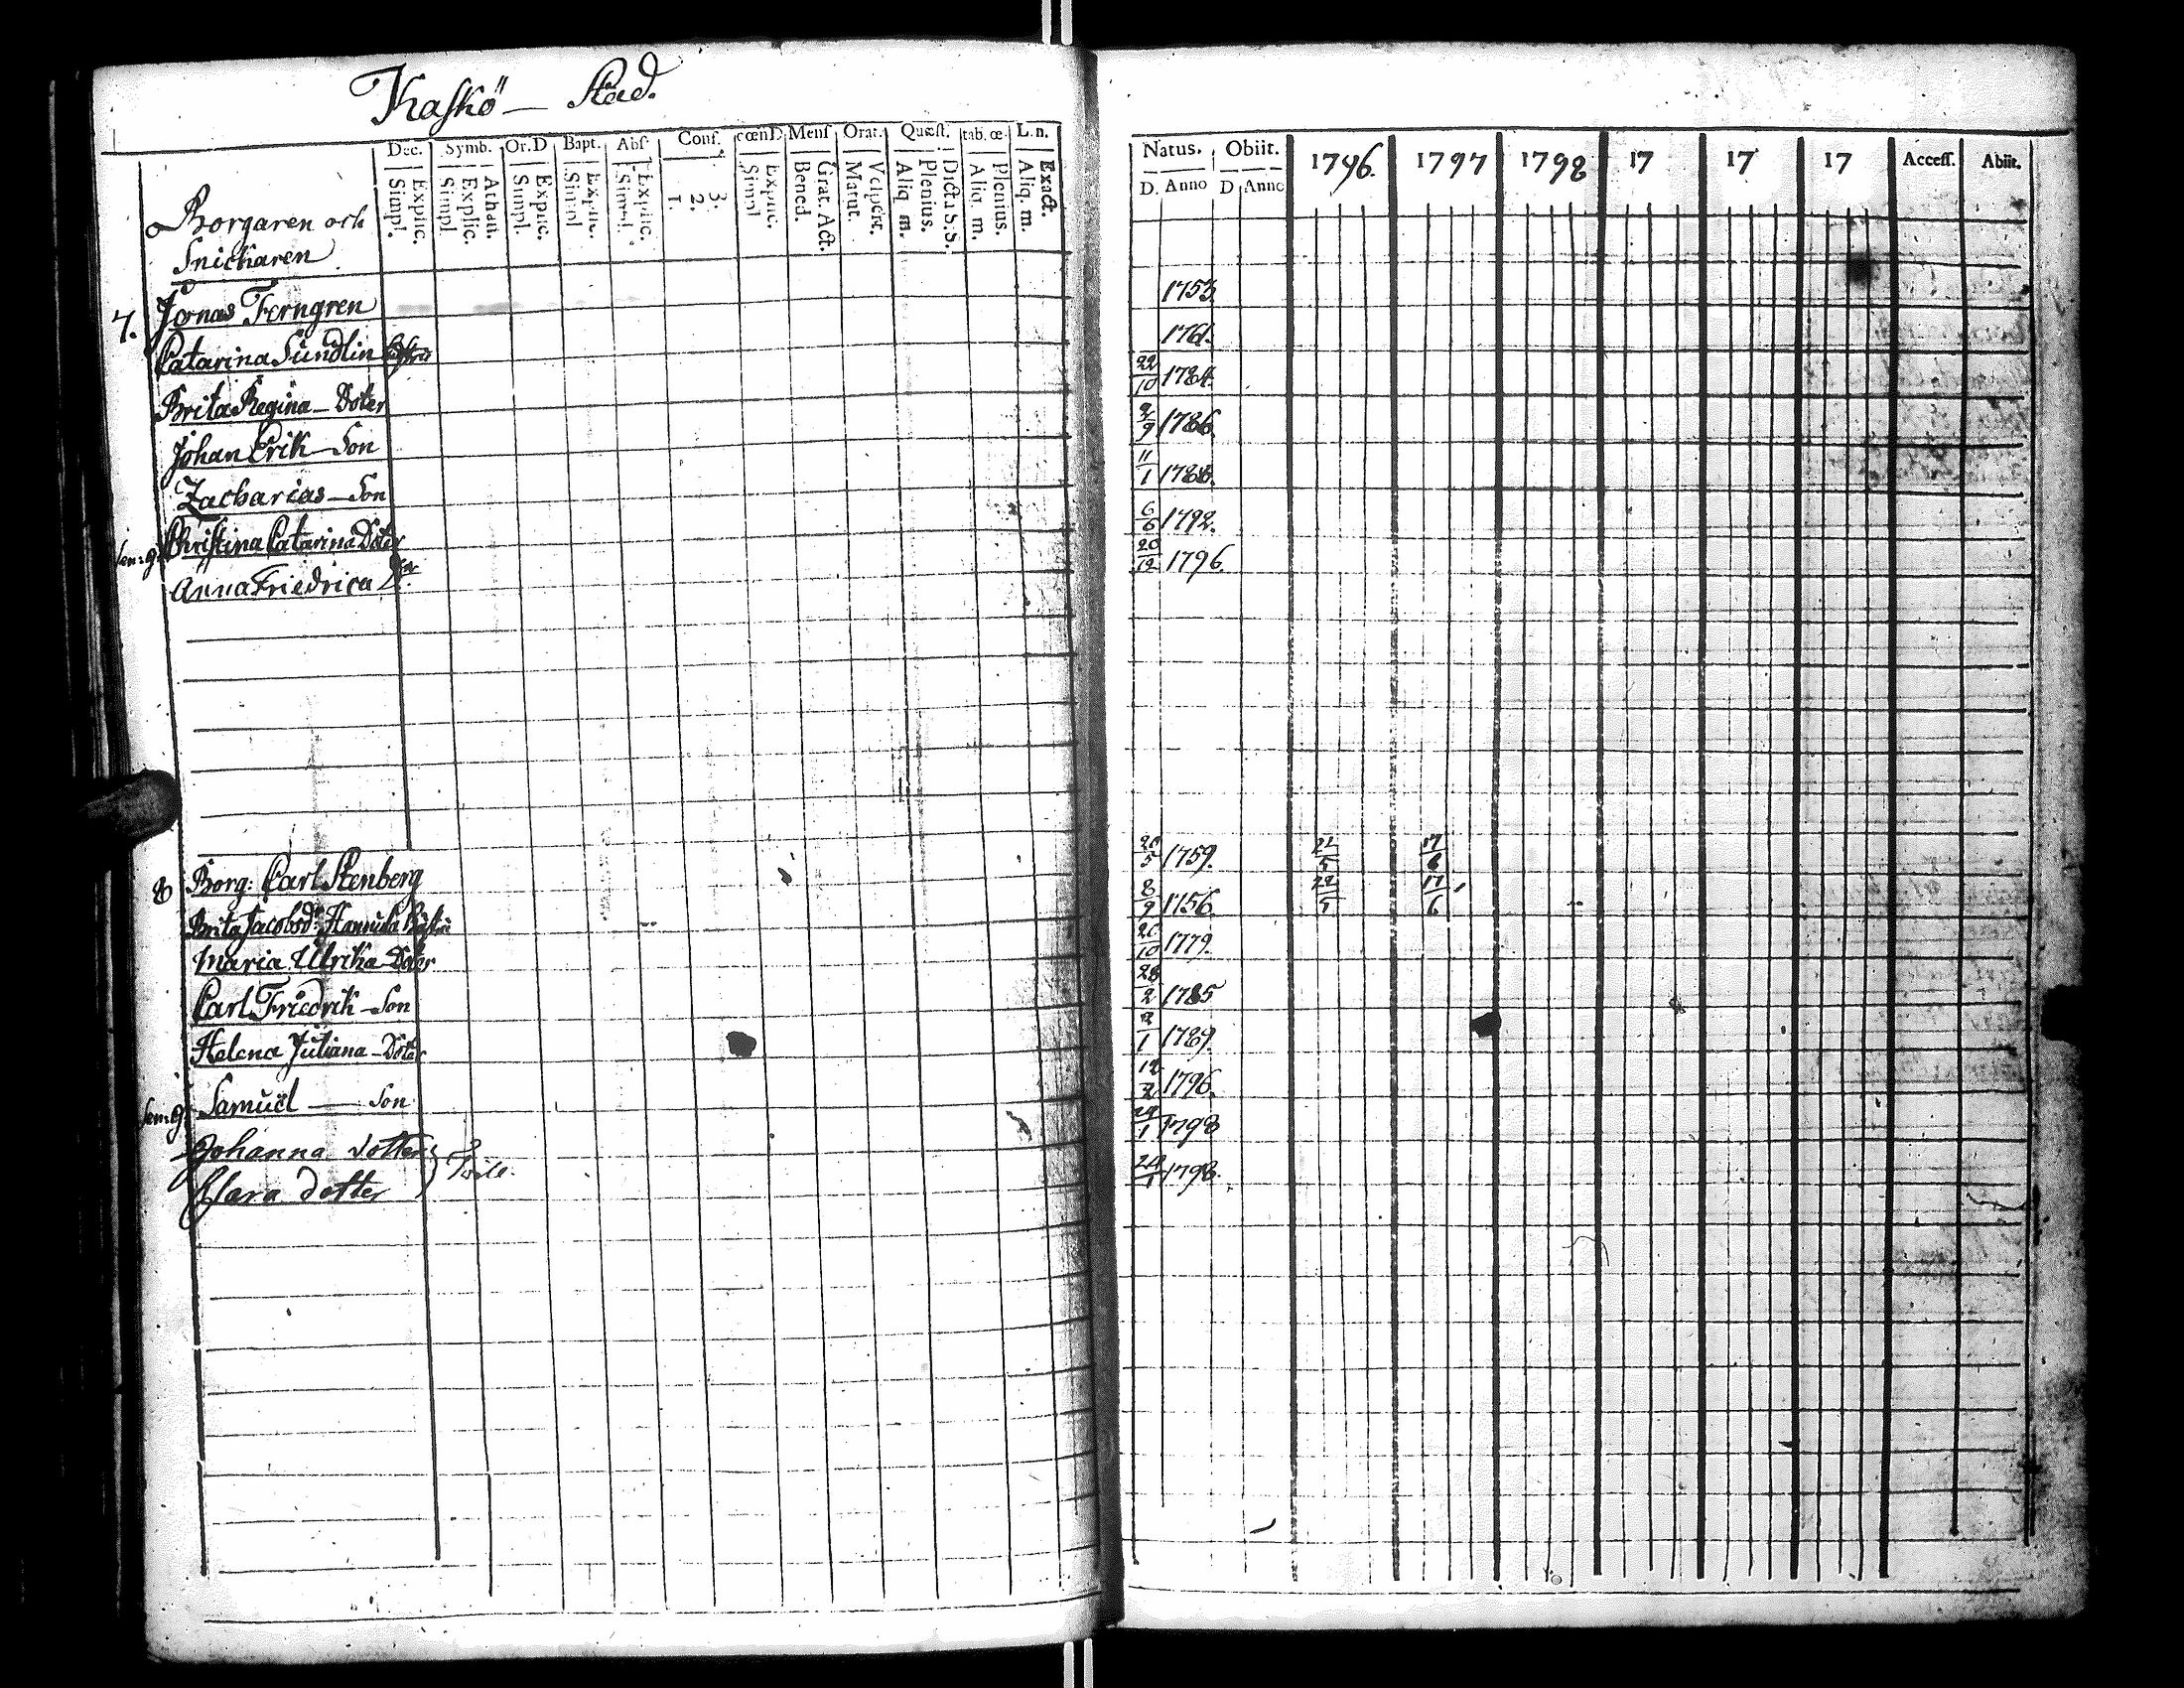 Kaskö — Stad.
Dec. Symb. Or.D Bapt. Abs. Conf. cœn D Mens Orat. Quæst. tab. œ. L. n.
Simpl. Explic. Simpl. Explic. Athan. Simpl. Explic. Simpl. Explic. Simpl. Explic. 1. 2. 3. Simpl. Explic. Bened. Grat. Act. Matut. Vespert. Aliq. m. Plenius. Dict. S. S. Aliq. m. Plenius. Aliq. m. Exact.
Natus. Obiit. 1796. 1797 1798 17 17 17 Access. Abiit.
D. Anno D. Anno
Borgaren och
Snickaren
7. Jonas Ferngren 1753.
Catarina Sundlin Hustru 1761.
Brita Regina — Doter 22/10 1784.
Johan Erik — Son 2/9 1786.
Zacharias — Son 11/1
Christina Catarina Doter 6/6 1792.
Anna Friedrica 20/12 1796.
8 Borg: Carl Stenberg 20/5 1759. 22/5 17/6
Brita Jacobsdr 8/9 1756. 22/5 17/6
Maria Ulrika — Doter 1779.
Carl Friedrik — Son 28/2 1785
Helena Juliana — Doter 2/1 1789.
Samuel — Son 12/2 1796.
Johanna dotter 1798
Clara dotter 1798.